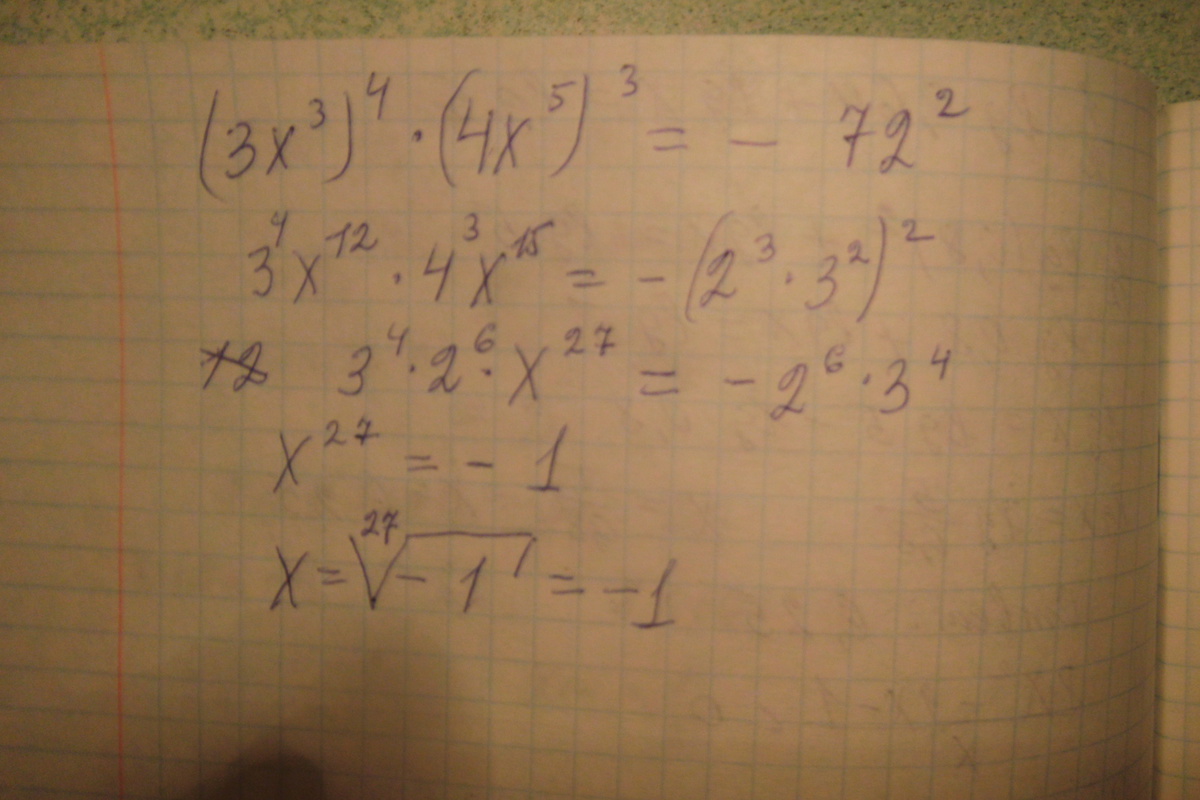 (3x³)⁴ · (4x⁵)³ = - 72²
3⁴x¹² · 4³x¹⁵ = - (2³ · 3²)²
3⁴ · 2⁶ · x²⁷ = - 2⁶ · 3⁴
x²⁷ = - 1
x = ²⁷√-1 = -1